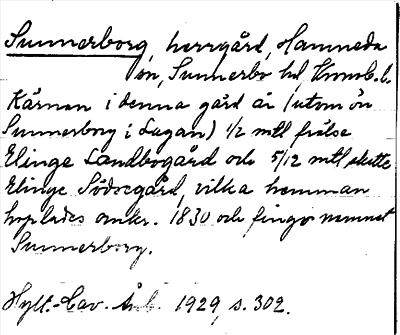 Sunnerborg, herrgård, Hamneda
sn, Sunnerbo hd, Kronob. l.
Kärnan i denna gård är (utom ön
Sunnerborg i Lagan) 1/2 mtl frälse
Elinge Landbogård och 5/12 mtl skatte
Elinge Södregård, vilka hemman
hoplades omkr. 1830 och fingo namnet
Sunnerborg.
Hylt.-Cav. Åsb. 1929, s. 302.